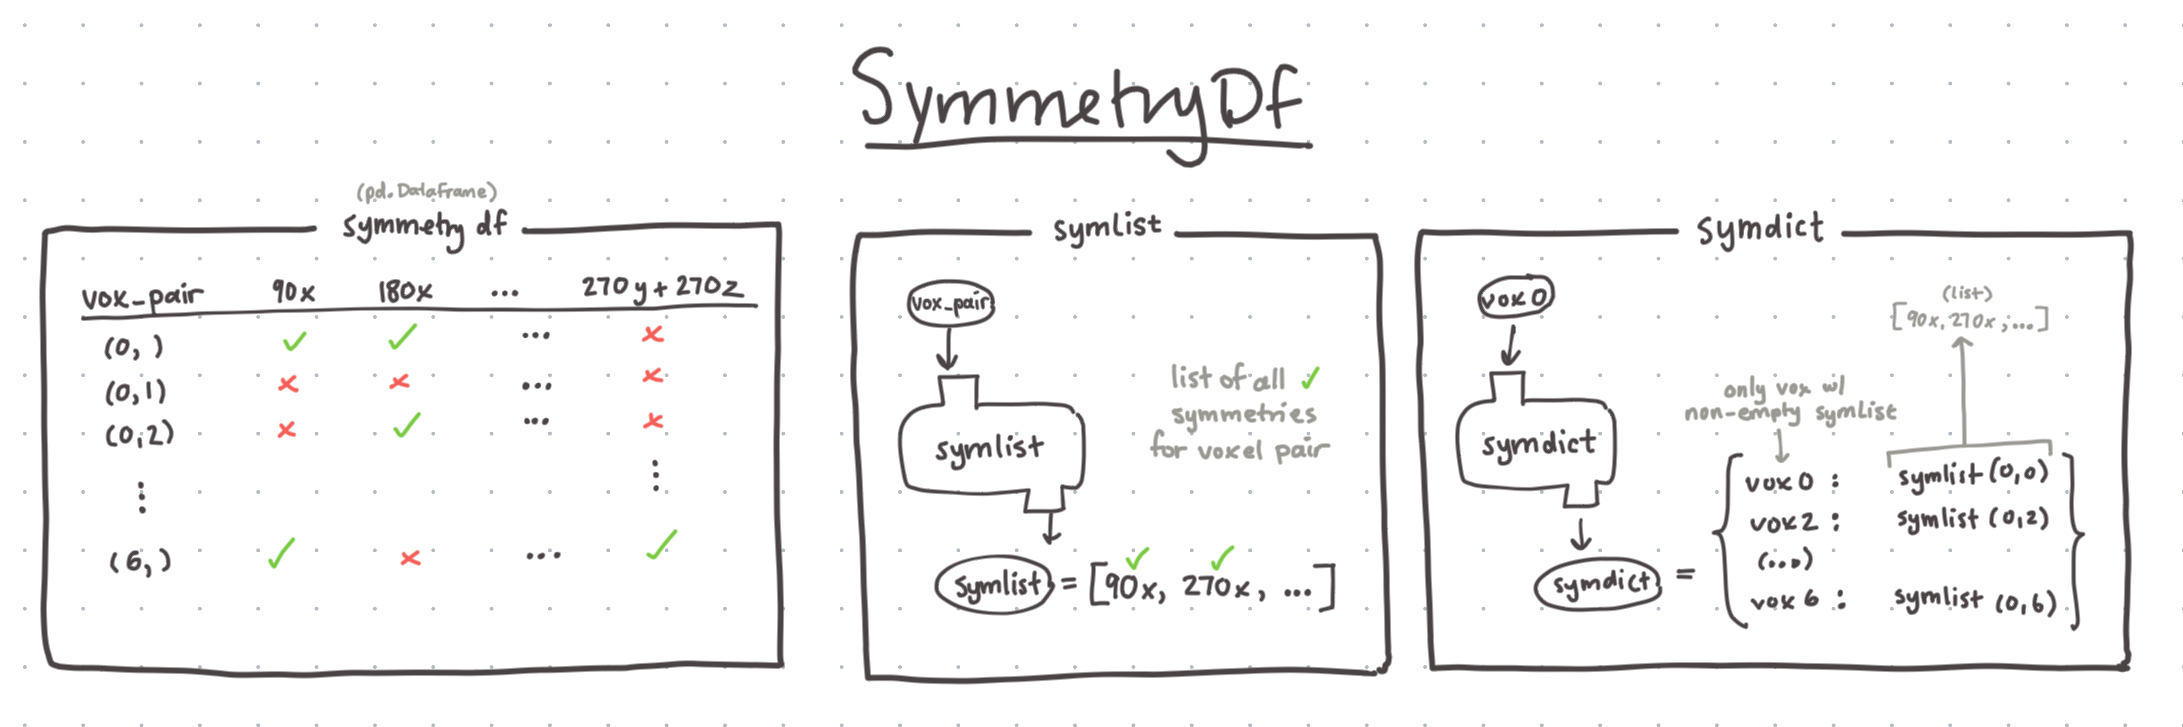 SymmetryDf
(pd.DataFrame)
symmetry df
vox_pair 90x 180x ... 270y + 270z
(0, ) ✓ ✓ ... ×
(0,1) × × ... ×
(0,2) × ✓ ... ×
⋮ ⋮
(6,) ✓ × .... ✓
symlist
vox_pair
symlist
list of all ✓
symmetries
for voxel pair
✓ ✓
symlist = [90x, 270x, ...]
symdict
vox 0
symdict
(list)
[90x, 270x, ...]
only vox w/
non-empty symlist
symdict = {
vox 0 : symlist (0,0)
vox 2 : symlist (0,2)
(...)
vox 6 : symlist (0,6)
}